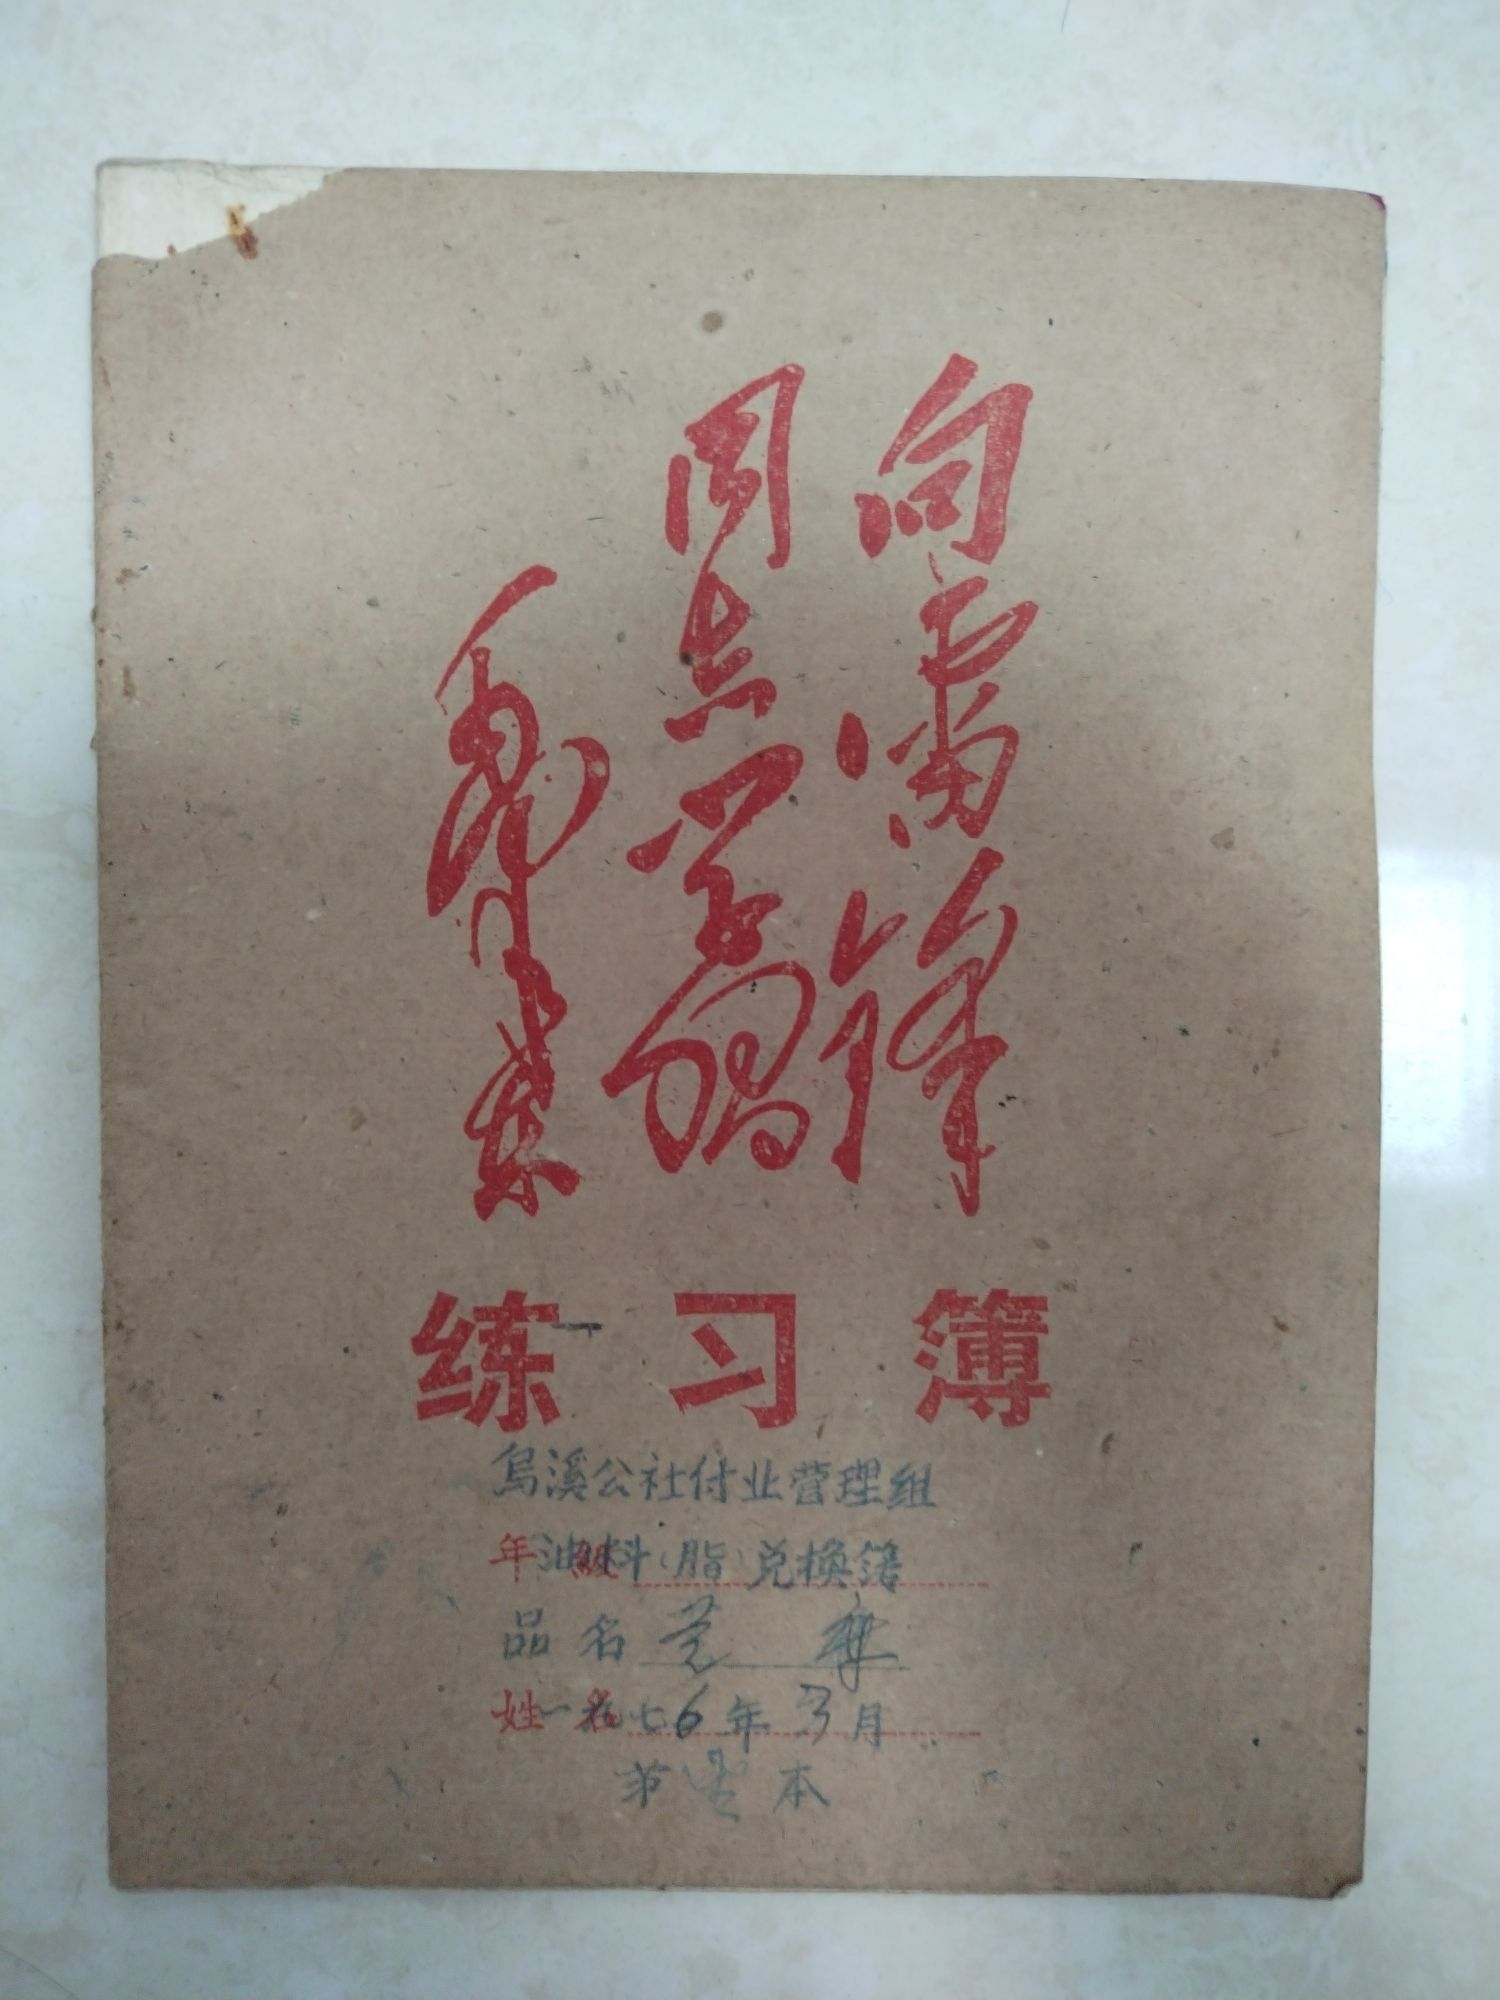 向雷锋
同志学习
毛泽东
练习簿
乌溪公社付业管理组
年级 油料(脂)兑换簿
品名 芝麻
姓名 一九七6年3月
第 本